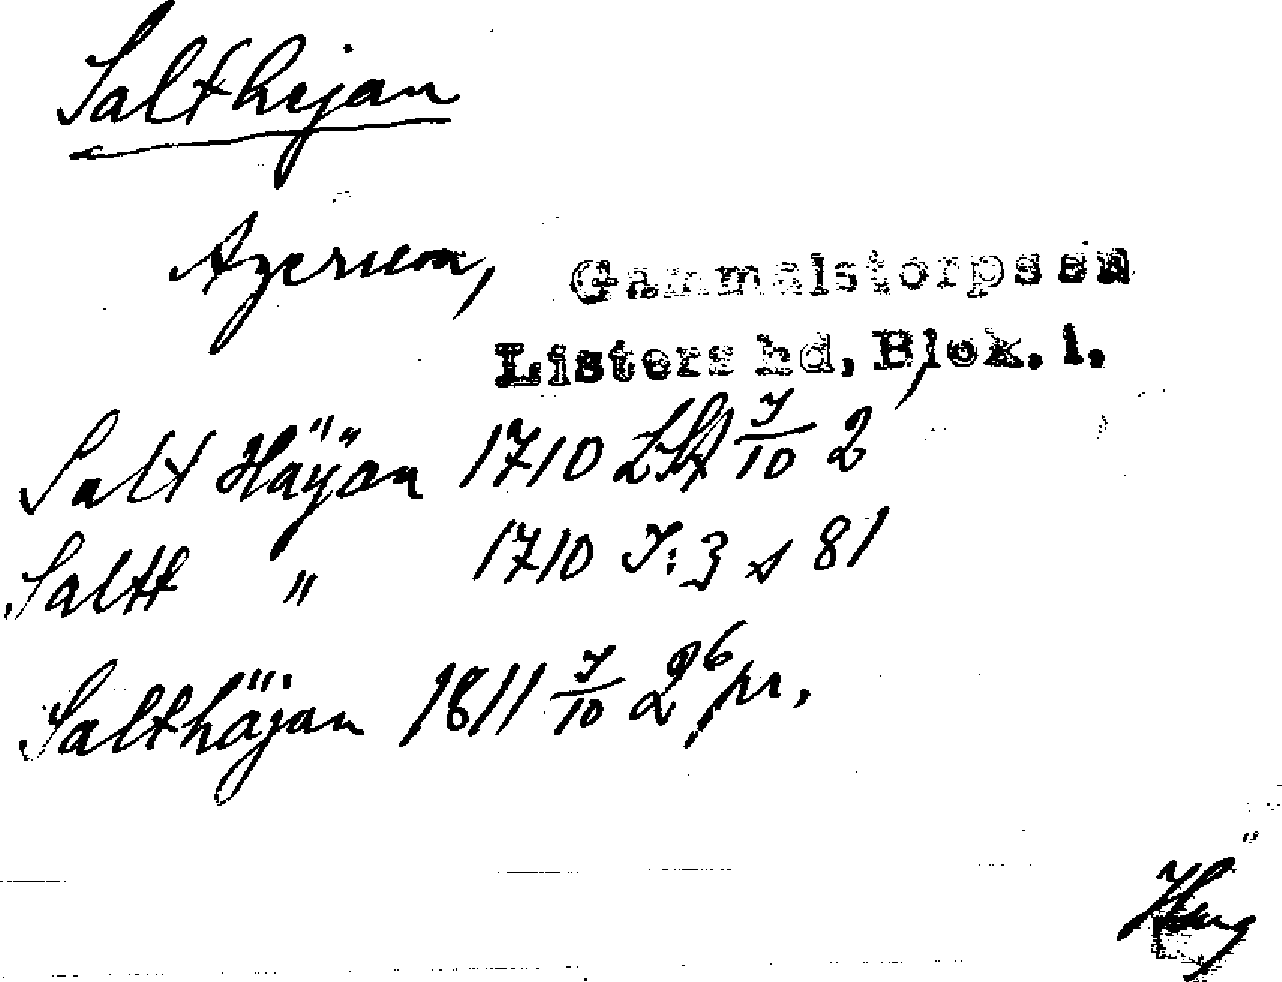 Salthejan
Agerum, Gammalstorpssn
Listers hd, Blek. l.
Salt Häÿan 1710 LSA I/10 2
Saltt " 1710 I:3 s 81
Salthäjan 1811 I/10 2 96 pr.